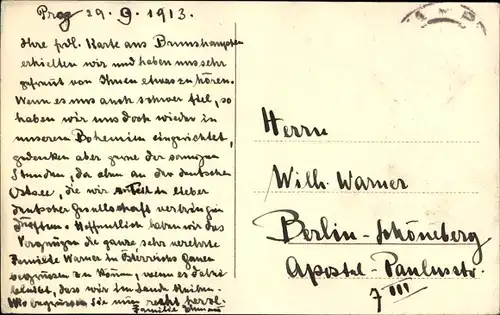 Prag 29. 9. 1913.
Ihre frdl. Karte aus Brunshaupten
erhielten wir und haben uns sehr
gefreut von Ihnen etwas zu hören.
Wenn es uns auch schwer fiel, so
haben wir uns doch wieder in
unserem Bohemien eingerichtet,
gedenken aber gerne der sonnigen
Stunden, da oben an der deutschen
Ostsee, die wir in lieber
deutscher Gesellschaft verbringen
durften. Hoffentlich haben wir das
Vergnügen die ganze, sehr verehrte
Familie Warner in Österreichs Gauen
begrüssen zu können, wenn es Ihnen
beliebt, dass wir im Lande bleiben.
Wir begrüssen Sie nun recht herzl.
Familie
Herrn
Wilh. Warner
Berlin-Schöneberg
Apostel-Paulusstr.
7 III